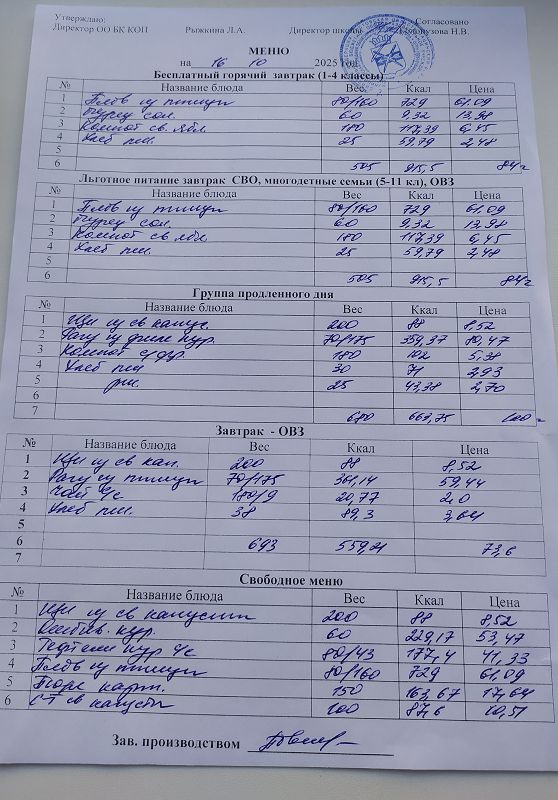 Утверждаю: Согласовано
Директор ОО БК КОП Рыжкина Л.А. Директор школы Н.В.
МЕНЮ
на 16 10 2025 год
Бесплатный горячий завтрак (1-4 классы)
№ Название блюда Вес Ккал Цена
1 Плов из птицы 80/160 729 61.09
2 Огурец сол. 60 9,32 13,98
3 Компот св. ябл. 180 117,39 6,45
4 Хлеб пш. 25 59,79 2,48
5
6 505 915,5 84=
Льготное питание завтрак СВО, многодетные семьи (5-11 кл), ОВЗ
№ Название блюда Вес Ккал Цена
1 Плов из птицы 80/160 729 61.09
2 Огурец сол. 60 9,32 13,98
3 Компот св. ябл. 180 117,39 6,45
4 Хлеб пш. 25 59,79 2,48
5
6 505 915,5 84=
Группа продленного дня
№ Название блюда Вес Ккал Цена
1 Щи из св капус. 200 88 8,52
2 Рагу из филе кур. 70/175 359,37 80,47
3 Компот с/фр. 180 102 5,38
4 Хлеб пш 30 71 2,93
5 рж. 25 43,38 2,70
6
7 680 663,75 100=
Завтрак - ОВЗ
№ Название блюда Вес Ккал Цена
1 Щи из св кап. 200 88 8,52
2 Рагу из птицы 70/175 361,14 59,44
3 Чай ч/с 180/9 20,77 2,0
4 Хлеб пш. 38 89,3 3,64
5
6 693 559,21 73,6
7
Свободное меню
№ Название блюда Вес Ккал Цена
1 Щи из св капусты 200 88 8,52
2 кур. 60 229,17 53,47
3 Тефтели кур ч/с 80/43 177,4 41,33
4 Плов из птицы 80/160 729 61,09
5 Пюре карт. 150 163,67 17,64
6 С-т св капусты 100 87,6 10,51
Зав. производством